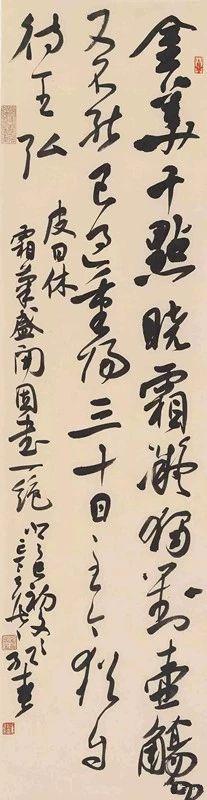 金華千點曉霜凝獨對壺觴
又不能已過重陽三十日至今猶自
待王弘
皮日休
霜菊盛開因書一絕